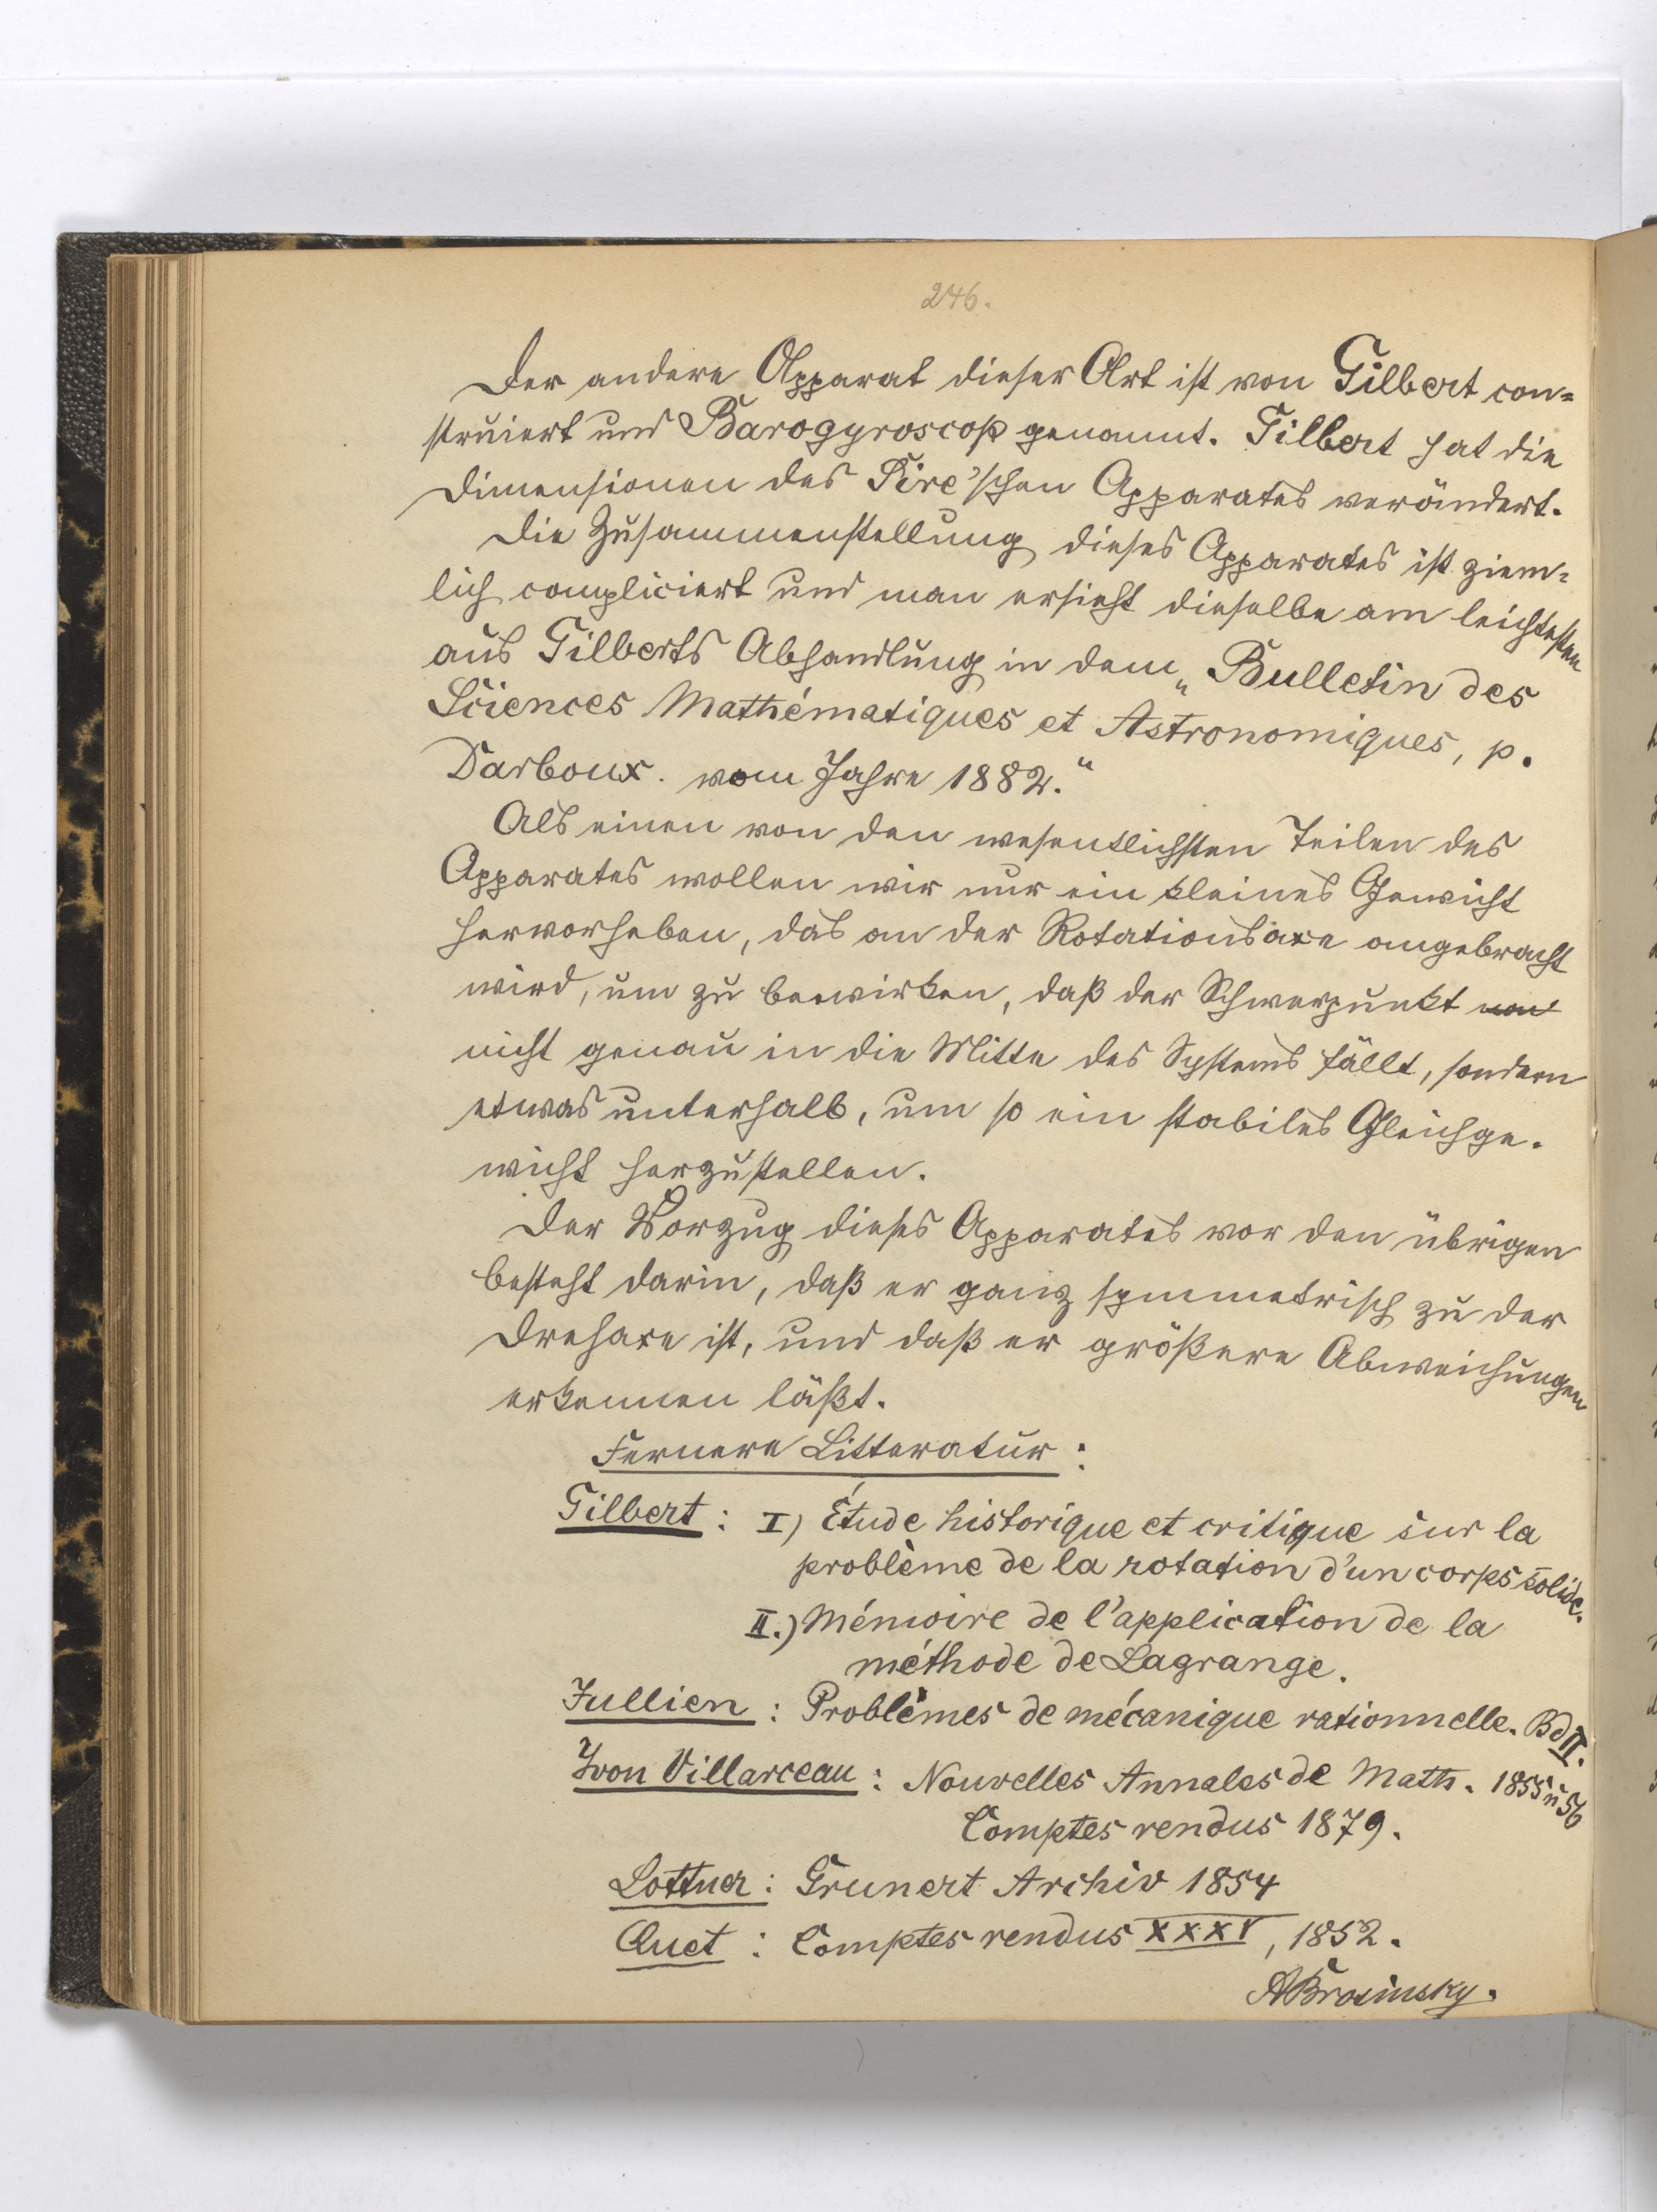 246.
Der andere Apparat dieser Art ist von Gilbert con=
struiert und Barogyroscop genannt. Gilbert hat die
Dimensionen des Sire'schen Apparates verändert.
Die Zusammenstellung dieses Apparates ist ziem=
lich compliciert und man ersieht dieselbe am leichtesten
aus Gilberts Abhandlung in dem „Bulletin des
Sciences Mathématiques et Astronomiques, p.
Darboux. vom Jahre 1882.“
Als einen von den wesentlichsten Teilen des
Apparates wollen wir nur ein kleines Gewicht
hervorheben, das an der Rotationsaxe angebracht
wird, um zu bewirken, daß der Schwerpunkt von
nicht genau in die Mitte des Systems fällt, sondern
etwas unterhalb, um so ein stabiles Gleichge-
wicht herzustellen.
Der Vorzug dieses Apparates vor den übrigen
besteht darin, daß er ganz symmetrisch zu der
Drehaxe ist, und daß er größere Abweichungen
erkennen läßt.
Fernere Litteratur:
Gilbert: I) Étude historique et critique sur la
problème de la rotation d'un corps solide.
II.) Mémoire de l'application de la
méthode de Lagrange.
Jullien: Problèmes de mécanique rationnelle. Bd II.
Yvon Villarceau: Nouvelles Annales de Math. 1855 u 56
Comptes rendus 1879.
Lottner: Grunert Archiv 1854
Quet: Comptes rendus XXXV, 1852.
ABrosinsky.